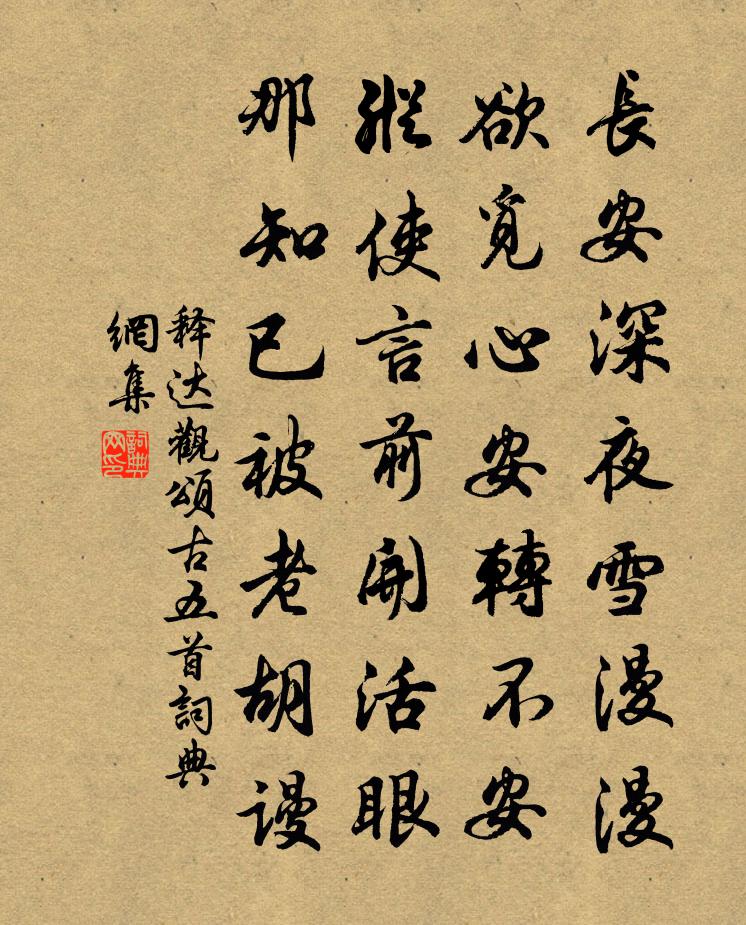 長安深夜雪漫漫
欲覓心安轉不安
縱使言前開活眼
那知已被老胡謾
释达觀頌古五首詞典
網集
詞典
网印